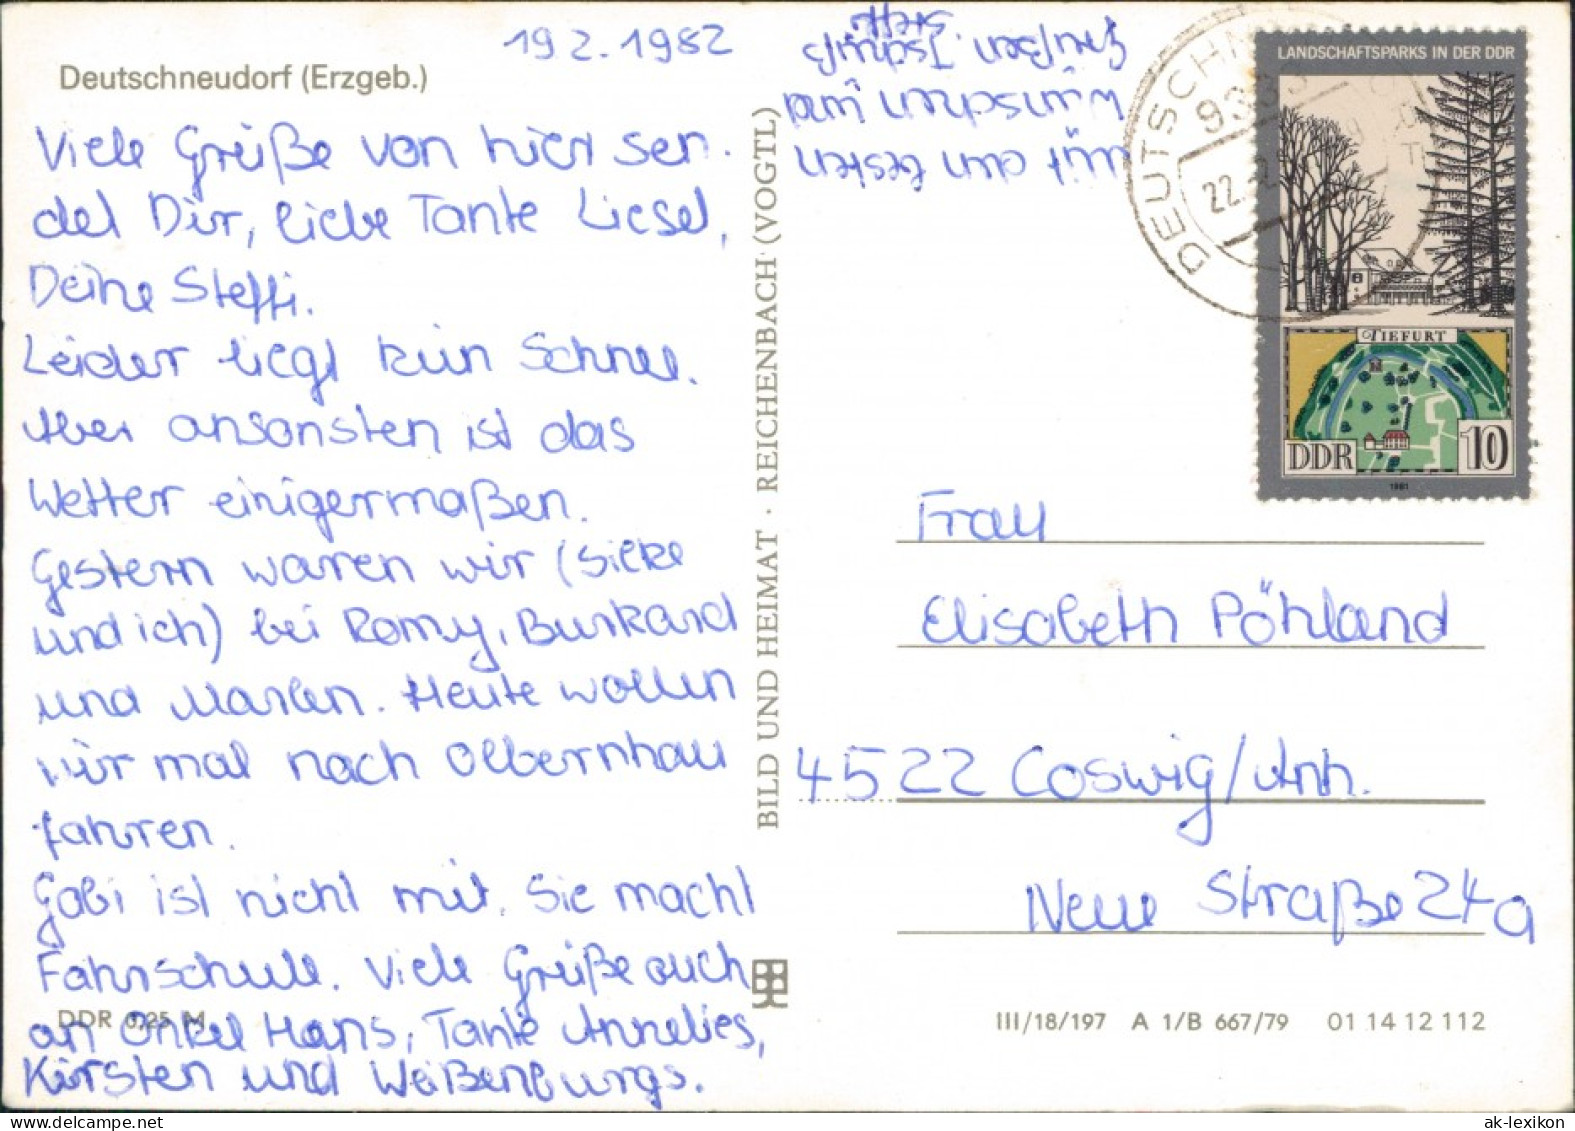 19.2.1982
Deutschneudorf (Erzgeb.)
Viele Grüße von hier sen-
det Dir, liebe Tante Liesel,
Deine Steffi.
Leider liegt kein Schnee.
Aber ansonsten ist das
Wetter einigermaßen.
Gestern waren wir (Silke
und ich) bei Romy, Burkard
und Marlen. Heute wollen
wir mal nach Olbernhau
fahren.
Gabi ist nicht mit. Sie macht
Fahrschule. Viele Grüße auch
an Onkel Hans, Tante Annelies,
Kirsten und Weißenburgs.
DDR 0,25 M
mit den besten
Wünschen und
Grüßen. Tschüß
Steffi
BILD UND HEIMAT · REICHENBACH (VOGTL)
DEUTSCHN
9335
22.2
LANDSCHAFTSPARKS IN DER DDR
TIEFURT
DDR 10
1981
Frau
Elisabeth Pöhland
4522 Coswig/Anh.
Neue Straße 24a
III/18/197 A 1/B 667/79 01 14 12 112
ak-lexikon.com